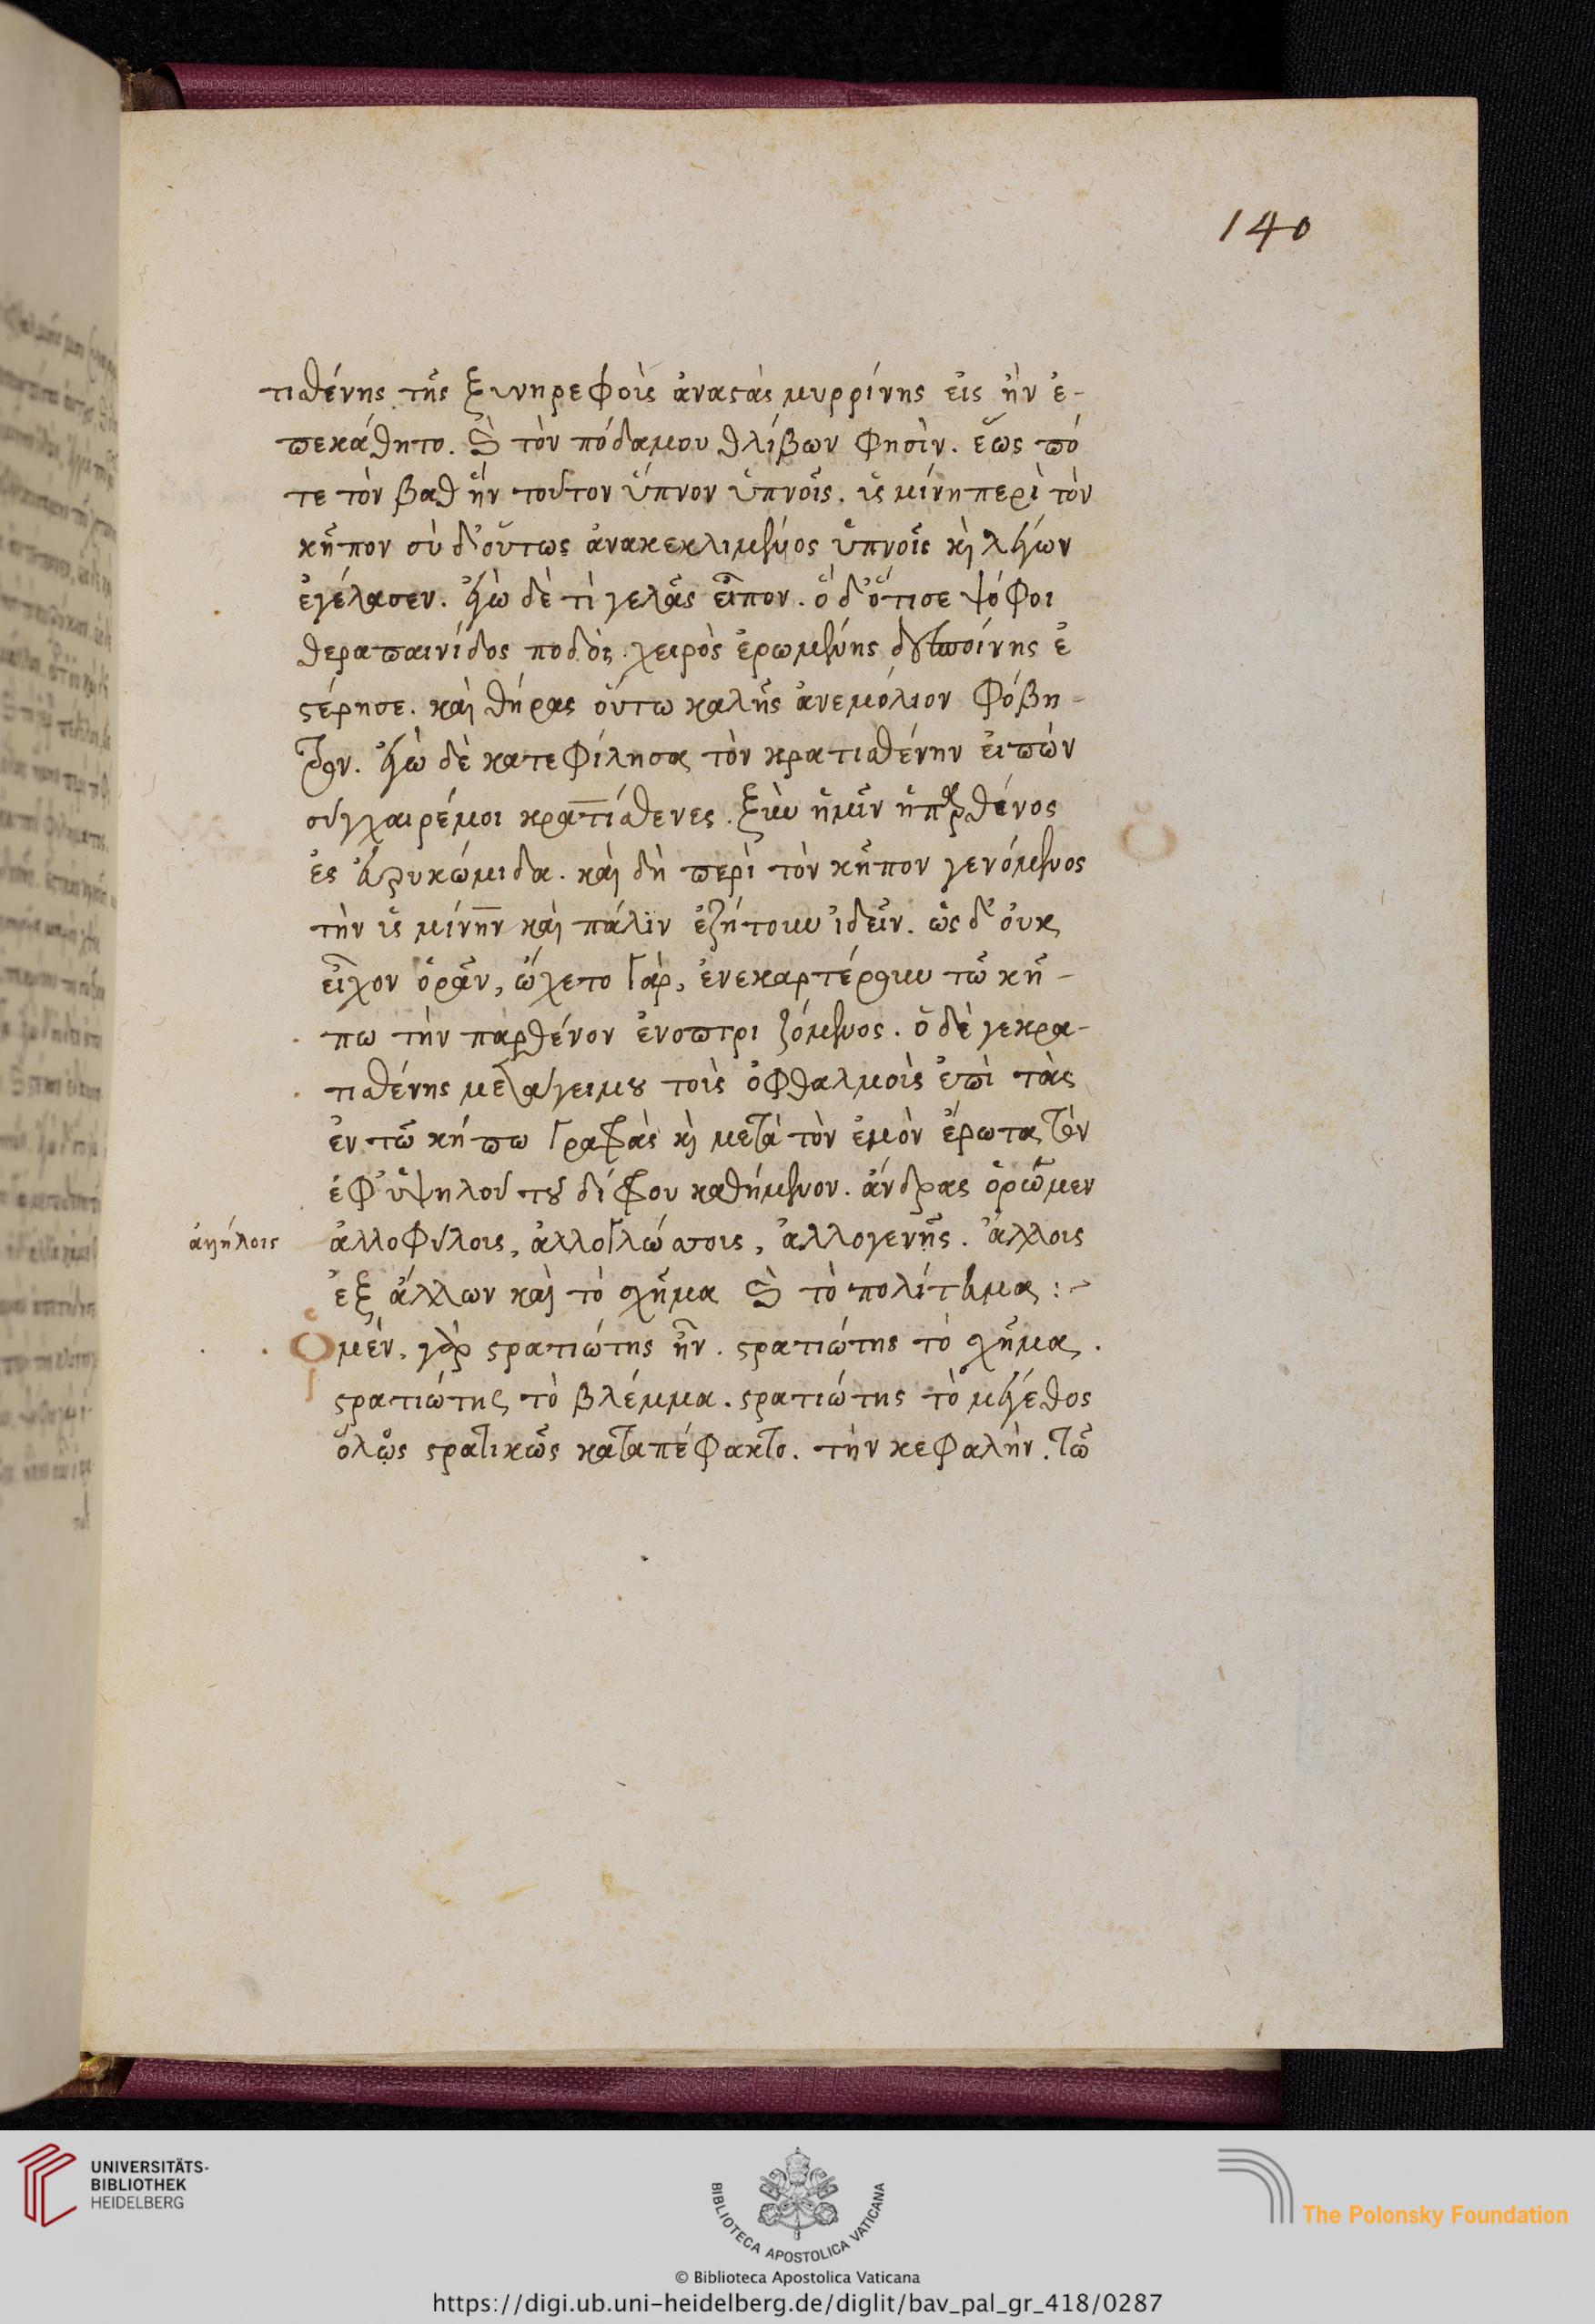 140
τιαθένης τῆς ξυνηρεφοῖς ἀναστὰς μυρρίνης εἰς ἣν ἐ-
πεκάθητο. καὶ τὸν πόδα μου θλίβων φησὶν. ἕως πό
τε τὸν βαθ ἦν τοῦτον ὕπνον ὑπνοῖς. ὑς μίνη περὶ τὸν
κῆπον σὺ δ' οὕτως ἀνακεκλιμένος ὑπνοῖς καὶ λέγων
ἐγέλασεν. ἐγὼ δὲ τί γελᾶς εἶπον. ὁ δ' ὅτι σε ψόφοι
θεραπαινίδος ποδὸς χειρὸς ἐρωμένης δεσποίνης ἐ
στέρησε. καὶ θήρας οὕτω καλῆς ἀνεμόλιον φόβη-
τρον. ἐγὼ δὲ κατεφίλησα τὸν κρατιαθένην εἰπών
σύγχαιρέ μοι κρατίαθενες. ξὺν ἡμῖν ἡ παρθένος
ἐς εὐρυκώμιδα. καὶ δὴ περὶ τὸν κῆπον γενόμενος
τὴν ὑς μίνην καὶ πάλιν ἐζήτουν ἰδεῖν. ὡς δ' οὐκ
εἶχον ὁρᾶν, ᾤχετο γὰρ, ἐνεκαρτέρουν τῶ κή-
πω τὴν παρθένον ἐνοπτριζόμενος. ὁ δέ γε κρα-
τιαθένης μετάγει μου τοῖς ὀφθαλμοῖς ἐπὶ τὰς
ἐν τῶ κήπω γραφὰς καὶ μετὰ τὸν ἐμὸν ἔρωτα τὸν
ἐφ' ὑψηλοῦ τοῦ δίφρου καθήμενον. ἄνδρας ὁρῶμεν
ἀλλήλοις ἀλλοφύλοις, ἀλλογλώσσοις, ἀλλογενῆς. ἄλλοις
ἐξ ἄλλων καὶ τὸ σχῆμα καὶ τὸ πολίτευμα :-
Ὁ μὲν, γὰρ στρατιώτης ἦν. στρατιώτης τὸ σχῆμα.
στρατιώτης τὸ βλέμμα. στρατιώτης τὸ μέγεθος
ὅλως στρατικῶς καταπέφρακτο. τὴν κεφαλὴν. τῶ
UNIVERSITÄTS-
BIBLIOTHEK
HEIDELBERG
BIBLIOTECA APOSTOLICA VATICANA
The Polonsky Foundation
© Biblioteca Apostolica Vaticana
https://digi.ub.uni-heidelberg.de/diglit/bav_pal_gr_418/0287